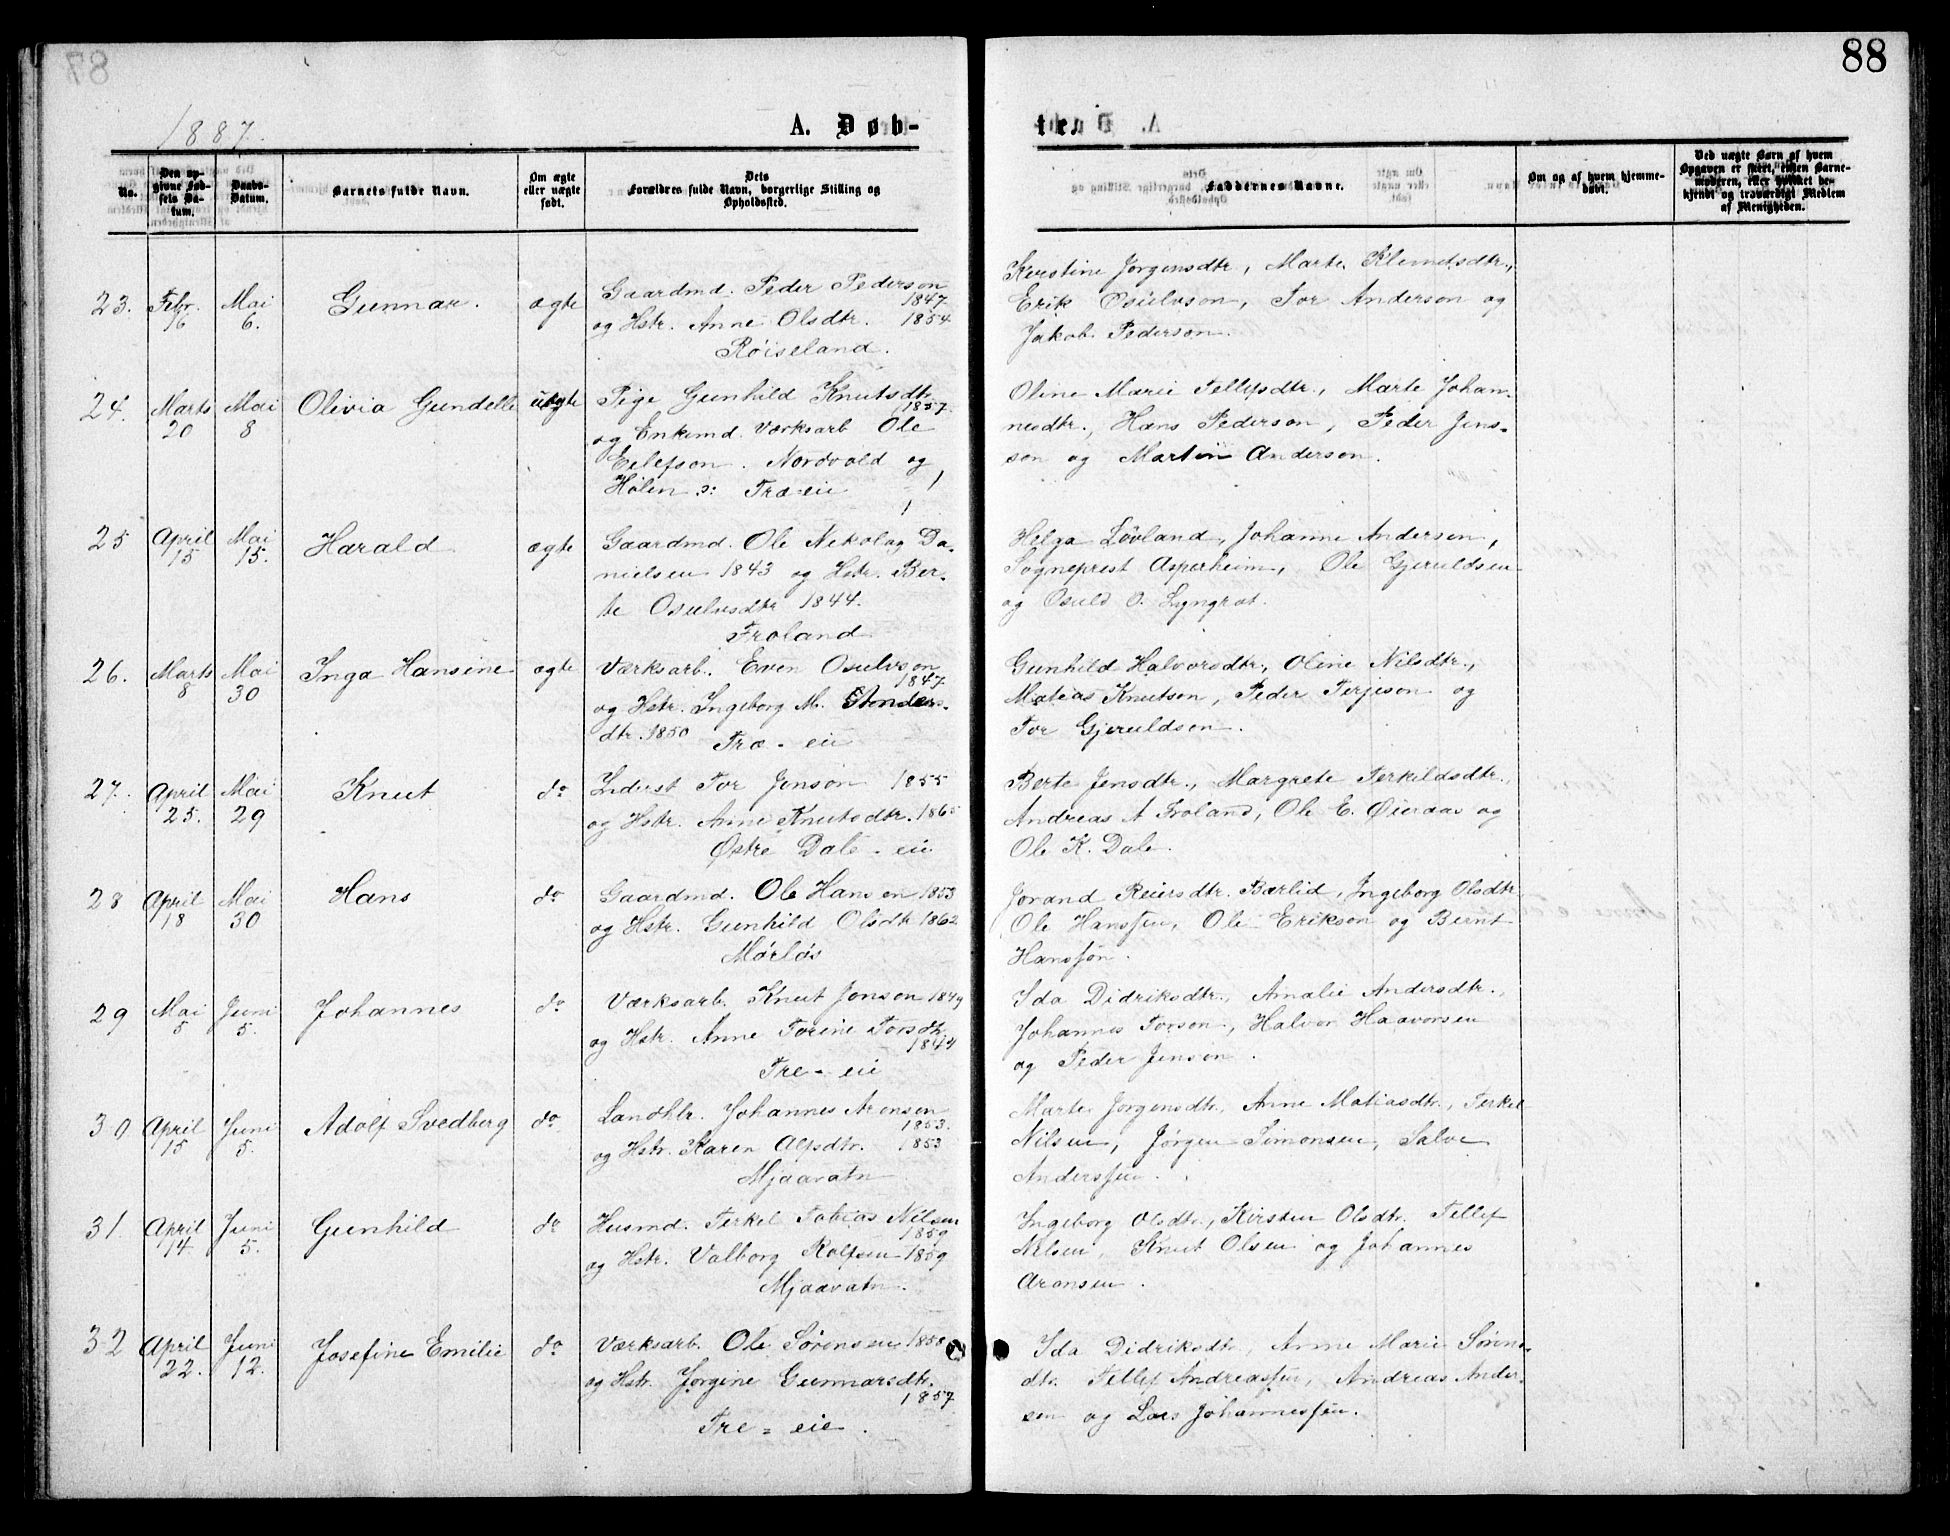 88
1887.
A. Døb-
te.
No.
Den op-
givne Fød-
sels Da-
tum.
Daabs-
Datum.
Barnets fulde Navn.
Om ægte
eller uægte
født.
Dets
Forældres fulde Navn, borgerlige Stilling og
Opholdssted.
Faddernes Navne.
Om og af hvem hjemme-
døbt.
Ved uægte Børn af hvem
Opgaven er skeet, enten Barne-
moderen, eller hvilket be-
kjendt og troværdigt Medlem
af Menigheden.
23. Febr. 16 Mai 6. Gunnar. ægte
Gaardmd. Peder Pederson 1847
og Hstr. Anne Olsdtr. 1854
Røiseland.
Kirstine Jørgensdtr, Marte Klemetsdtr,
Erik Osulvson, Tor Anderson og
Jakob Pederson.
24. Marts 20 Mai 8 Olivia Gundelle uægte
Pige Gunhild Knutsdtr 1857
og Enkemd. Værksarb Ole
Eilefson. Nordvold og
Holen ɔ: Træ-eie
Oline Marie Tellefsdtr., Marte Johan-
nesdtr., Hans Pederson, Peder Jens-
son og Martin Anderson.
25 April 15 Mai 15. Harald ægte
Gaardmd. Ole Nekolag Da-
nielsen 1843 og Hstr. Ber-
te Osulvsdtr 1844.
Froland
Helga Løvland, Johanne Andersen,
Sogneprest Asperheim, Ole Gjeruldsen
og Osuld O. Lyngrot.
26. Marts 8 Mai 30 Inga Hansine ægte
Værksarb. Even Osulvson 1847
og Hstr. Ingeborg M. Anders-
dtr. 1850 Træ-eie
Gunhild Halvorsdtr., Oline Nilsdtr.,
Matias Knutson, Peder Terjeson og
Tor Gjeruldson.
27. April 25. Mai 29 Knut do
Inderst Tor Jenson 1855
og Hstr. Anne Knutsdtr. 1865
Østre Dale-eie
Berte Jensdtr., Margrete Terkildsdtr.,
Andreas A Froland, Ole E. Øieraas og
Ole K. Dale.
28 April 18 Mai 30 Hans do
Gaardmd. Ole Hansen 1853
og Hstr. Gunhild Olsdtr 1862
Mørløs
Jorand Reiersdtr. Bærlid, Ingeborg Olsdtr
Ole Hansssen, Ole Erikson og Bernt
Hansson.
29 Mai 5 Juni 5. Johannes do
Værksarb. Knut Jonson 1849
og Hstr. Anne Torine Torsdtr 1849
Tre-eie
Ida Didriksdtr., Amalie Andersdtr.,
Johannes Torson, Halvor Haavorsen
og Peder Jenson.
30 April 15 Juni 5. Adolf Svedberg do
Landhlr. Johannes Aronsen 1853.
og Hstr. Karen Alfsdtr. 1853
Mjaavatn
Marte Jørgensdtr, Anne Matiasdtr., Terkel
Nilsen, Jørgen Simonsen, Salve
Anderssen.
31. April 14. Juni 5. Gunhild do
Husmd. Terkel Tobias Nilsen 1859
og Hstr. Valborg Rolfsen 1859
Mjaavatn.
Ingeborg Olsdtr., Kirsten Olsdtr. Tellef
Nilsen, Knut Olsen og Johannes
Aronsen.
32 April 22. Juni 12. Josefine Emilie do
Værksarb. Ole Sørensen 1858
og Hstr. Jørgine Gunnarsdtr. 1857
Tre-eie.
Ida Didriksdtr, Anne Marie Sørens-
dtr. Tellef Andreassen, Andreas Ander-
sen og Lars Johannessen.